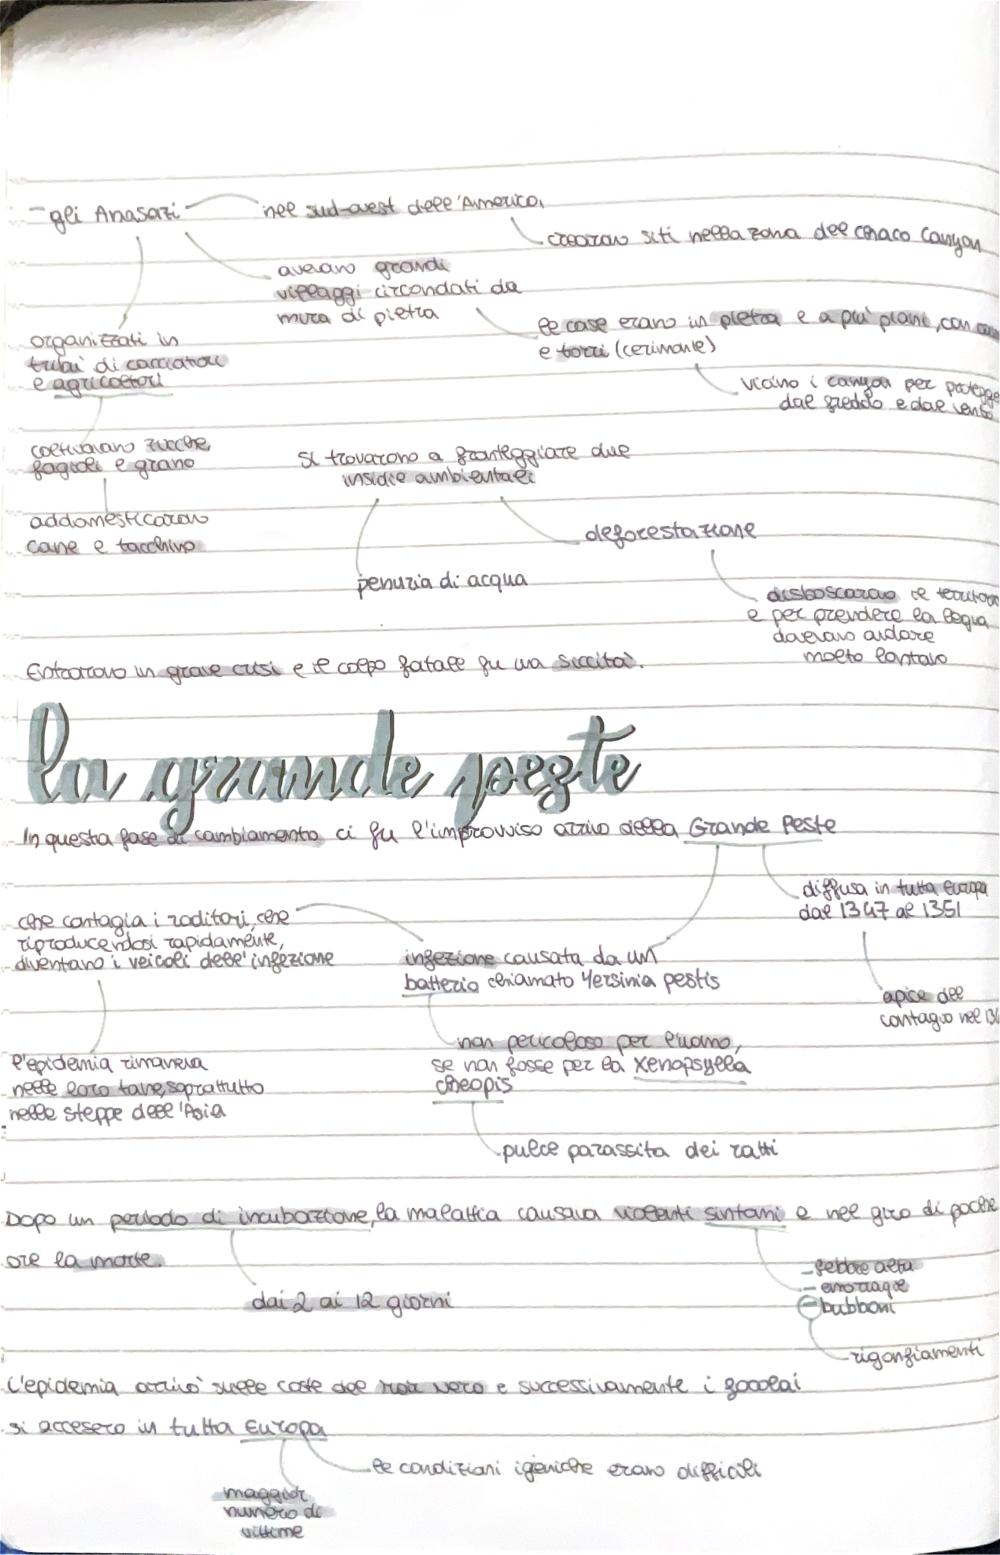 - gli Anasazi
nel sud-ovest dell'America,
crearono siti nella zona del Chaco Canyon
avevano grandi
villaggi circondati da
mura di pietra
le case erano in pietra e a più piani, con
e torri (cerimonie)
vicino i canyon per
dal freddo e dal vento
organizzati in
tribù di cacciatori
e agricoltori
coltivavano zucche,
fagioli e grano
addomesticarono
cane e tacchino
si trovarono a fronteggiare due
insidie ambientali
penuria di acqua
deforestazione
disboscarono il
e per prendere la legna
dovevano andare
molto lontano
Entrarono in grave crisi e il colpo fatale fu una siccità.
la grande peste
In questa fase di cambiamento ci fu l'improvviso arrivo della Grande Peste
diffusa in tutta Europa
dal 1347 al 1351
apice del
contagio nel
infezione causata da un
batterio chiamato Yersinia pestis
che contagia i roditori, che
riproducendosi rapidamente,
diventano i veicoli dell'infezione
l'epidemia rimaneva
nelle loro tane, soprattutto
nelle steppe dell'Asia
non pericoloso per l'uomo,
se non fosse per la Xenopsylla
cheopis
pulce parassita dei ratti
Dopo un periodo di incubazione, la malattia causava violenti sintomi e nel giro di poche
ore la morte.
dai 2 ai 12 giorni
- febbre alta
- emorragie
- bubboni
rigonfiamenti
L'epidemia arrivò sulle coste del Mar Nero e successivamente i focolai
si accesero in tutta Europa
le condizioni igieniche erano difficili
maggior
numero di
vittime